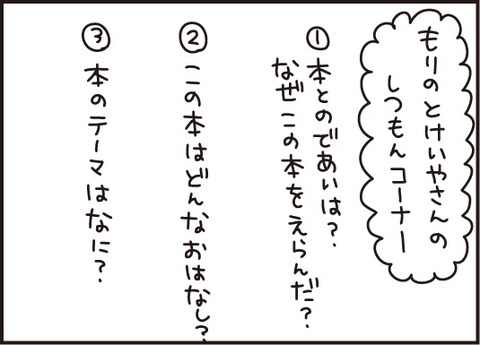 もりのとけいやさんの
しつもんコーナー
① 本とのであいは？
なぜこの本をえらんだ？
② この本はどんなおはなし？
③ 本のテーマはなに？